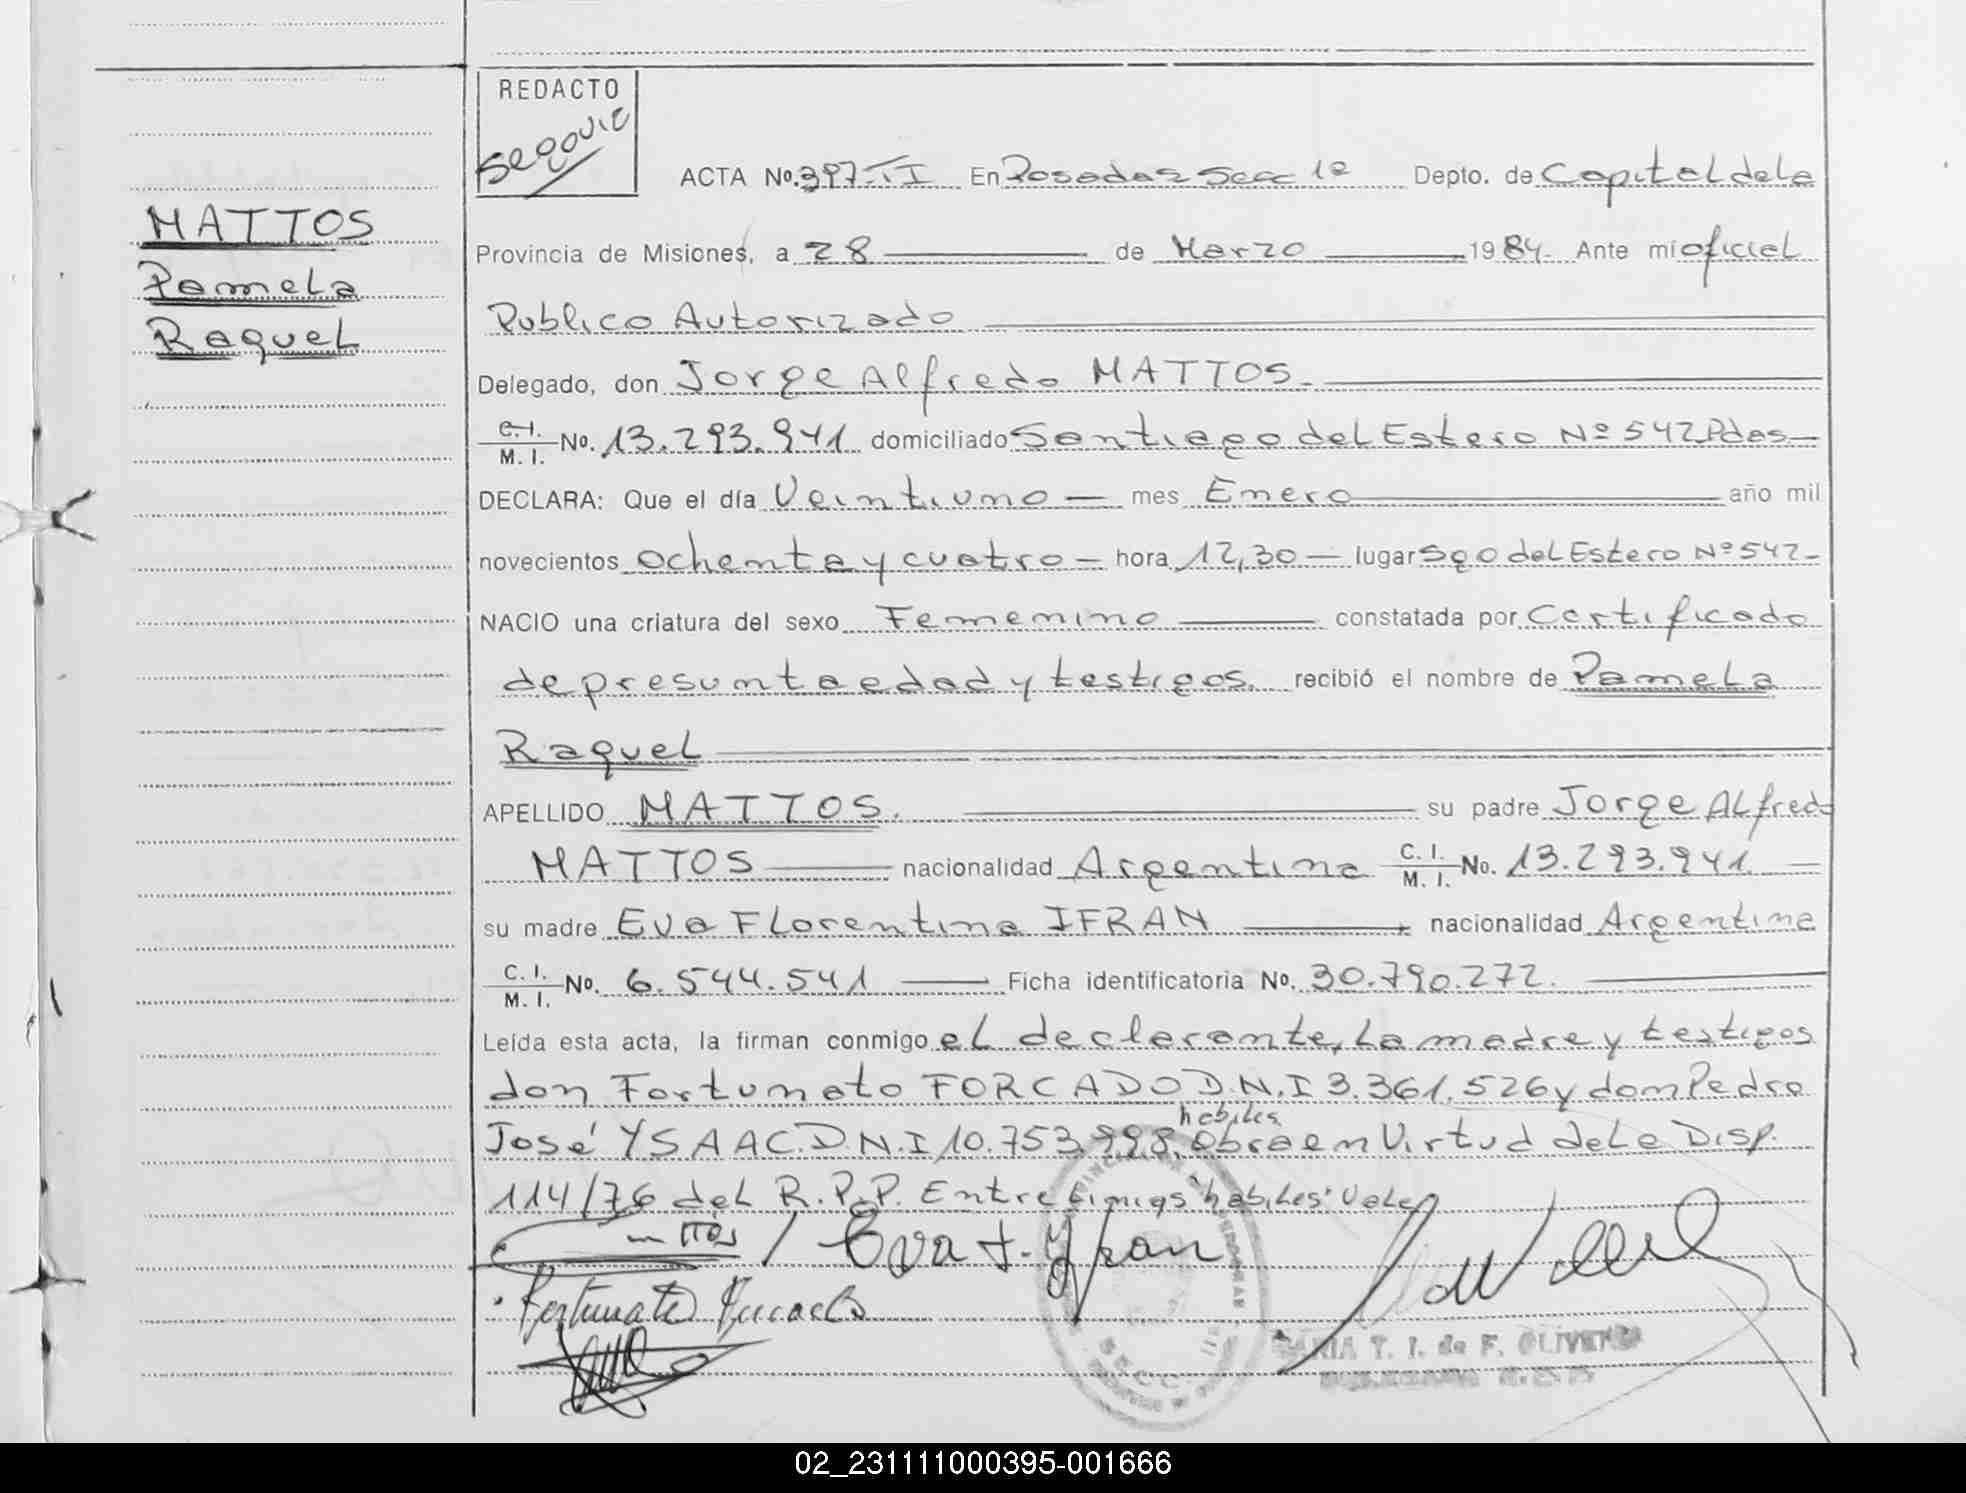 REDACTO
Segovia
ACTA No. 397-TI En Posadas Secc 1ª Depto. de Capital de la
MATTOS
Pamela
Raquel
Provincia de Misiones, a 28 de Marzo 1984. Ante mí oficial
Publico Autorizado
Delegado, don Jorge Alfredo MATTOS.
C. I.
M. I. No. 13.293.941 domiciliado Santiago del Estero Nº 542 Pdas
DECLARA: Que el día Veintiuno mes Enero año mil
novecientos ochenta y cuatro hora 12,30 lugar Sgo del Estero Nº 542
NACIO una criatura del sexo Femenino constatada por Certificado
de presunta edad y testigos. recibió el nombre de Pamela
Raquel
APELLIDO MATTOS. su padre Jorge Alfredo
MATTOS nacionalidad Argentina C. I. M. I. No. 13.293.941
su madre Eva Florentina IFRAN nacionalidad Argentina
C. I.
M. I. No. 6.544.541 Ficha identificatoria No. 30.790.272.
Leída esta acta, la firman conmigo el declarante, la madre y testigos
don Fortunato FORCADO D.N.I 3.361.526 y don Pedro
habiles
José YSAAC. D.N.I 10.753.998. Obra en Virtud de la Disp.
114/76 del R.P.P. Entre linias "habiles" Vale
Eva F. Yfran
Fortunato
SECC.
T. I. de F. OLIVERA
02_231111000395-001666